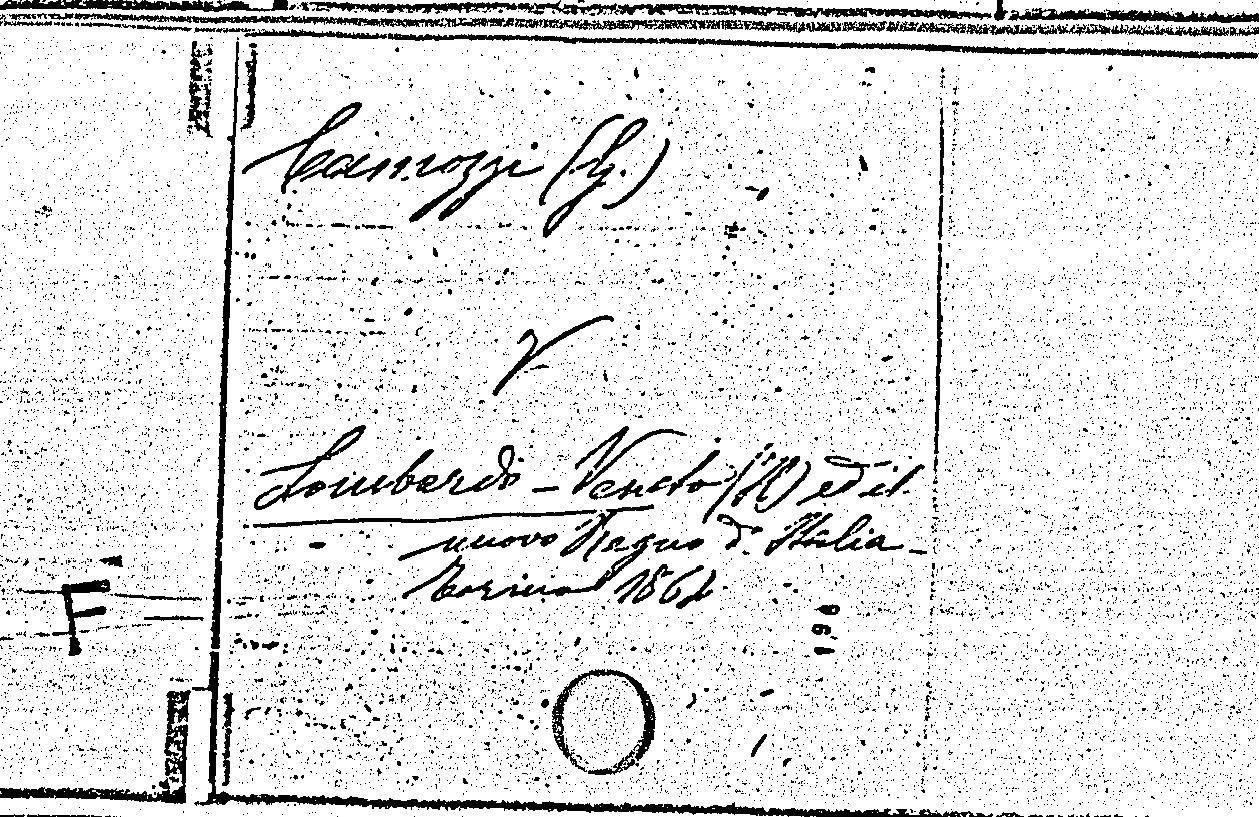 Camozzi (G.)
V
Lombardo-Veneto (Il) ed il
nuovo Regno d'Italia -
Torino 1861
198
F